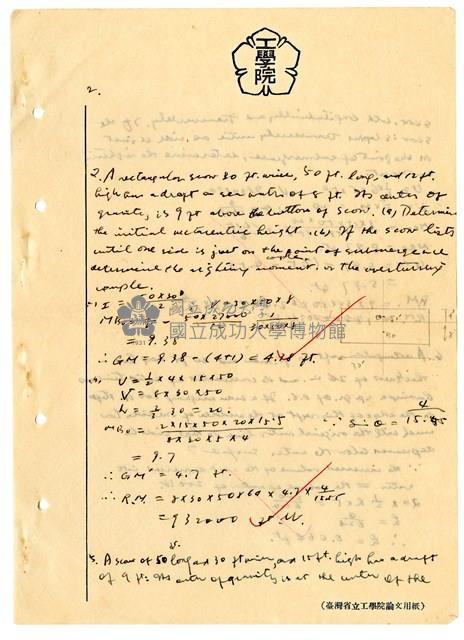 工學院
2.
2. A rectangular scow 30 ft. wide, 50 ft. long, and 12 ft.
high has a draft in sea water of 8 ft. Its center of
gravity is 9 ft above the bottom of scow. (a) Determine
the initial metacentric height. (b) If the scow lists
until one side is just on the point of submergence
determine the righting moment or the overturning
couple.
國立成功大學
國立成功大學博物館
1931
= 9.38
∴ GM = 9.38 - (4+1) = 4.38 ft.
(b) U = ½ × 4 × 15 × 50
V = 8 × 30 × 50
L = ⅔ 30 = 20.
= 9.7
∴ GM = 4.7 ft.
∴ R.M. = 8 × 30 × 50 × 64 × 4.7 ×
= 932000
3. A scow 50 long and 30 ft wide, and 15 ft. high has a draft
of 9 ft. Its center of gravity is at the center of the
(臺灣省立工學院論文用紙)